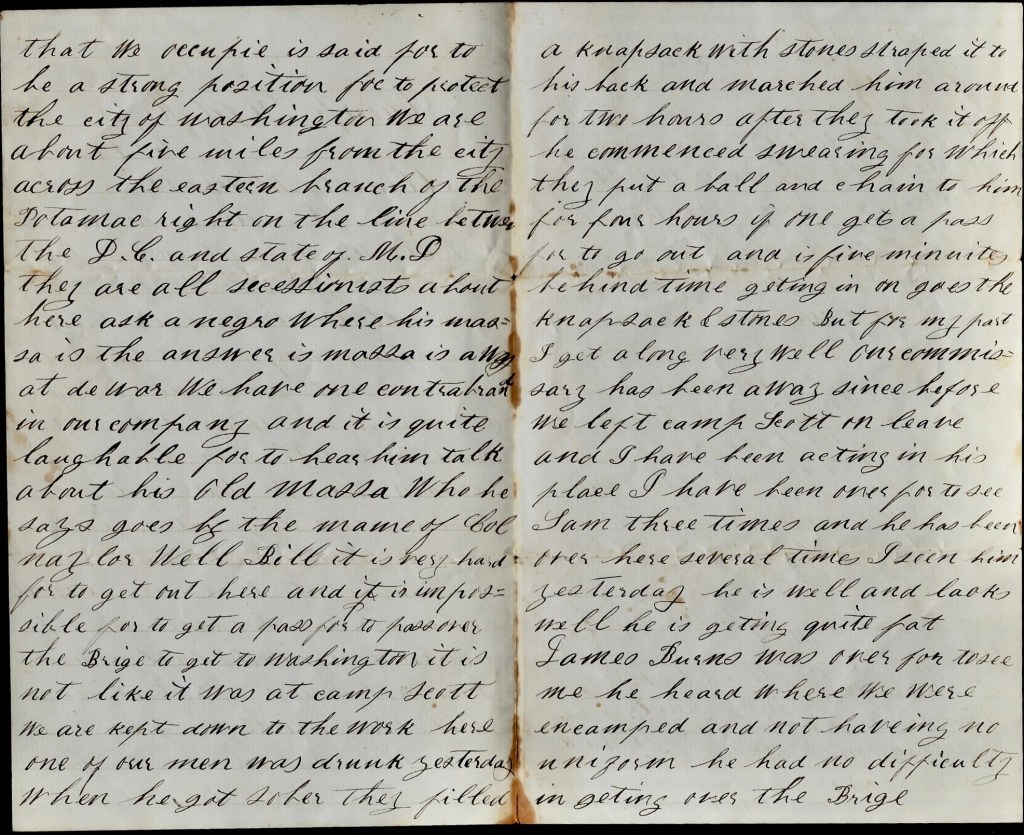 that We occupie is said for to
be a strong position for to protect
the city of Washington We are
about five miles from the city
across the eastern branch of the
Potamac right on the line between
the D.C. and state of M.D
they are all secessionists about
here ask a negro Where his mas=
sa is the answer is massa is away
at de war We have one contraband
in our company and it is quite
laughable for to hear him talk
about his Old Massa Who he
says goes by the mame of Col
naylor Well Bill it is very hard
for to get out here and it is unpos=
sible for to get a pass for to pass over
the Brige to get to Washington it is
not like it Was at camp Scott
We are kept down to the Work here
one of our men Was drunk yesterday
When he got sober they filled
a Knapsack With stones straped it to
his back and marched him around
for two hours after they took it off
he commenced swearing for Which
they put a ball and chain to him
for four hours if one gets a pass
for to go out and is five minuites
behind time geting in on goes the
Knapsack & stones But for my part
I get along very Well Our commis=
sary has been away since before
We left camp Scott on leave
and I have been acting in his
place I have been over for to see
Sam three times and he has been
over here several times I seen him
yesterday he is Well and looks
Well he is geting quite fat
James Burns Was over for to see
me he heard Where We Were
encamped and not haveing no
uniform he had no difficulty
in geting over the Brige